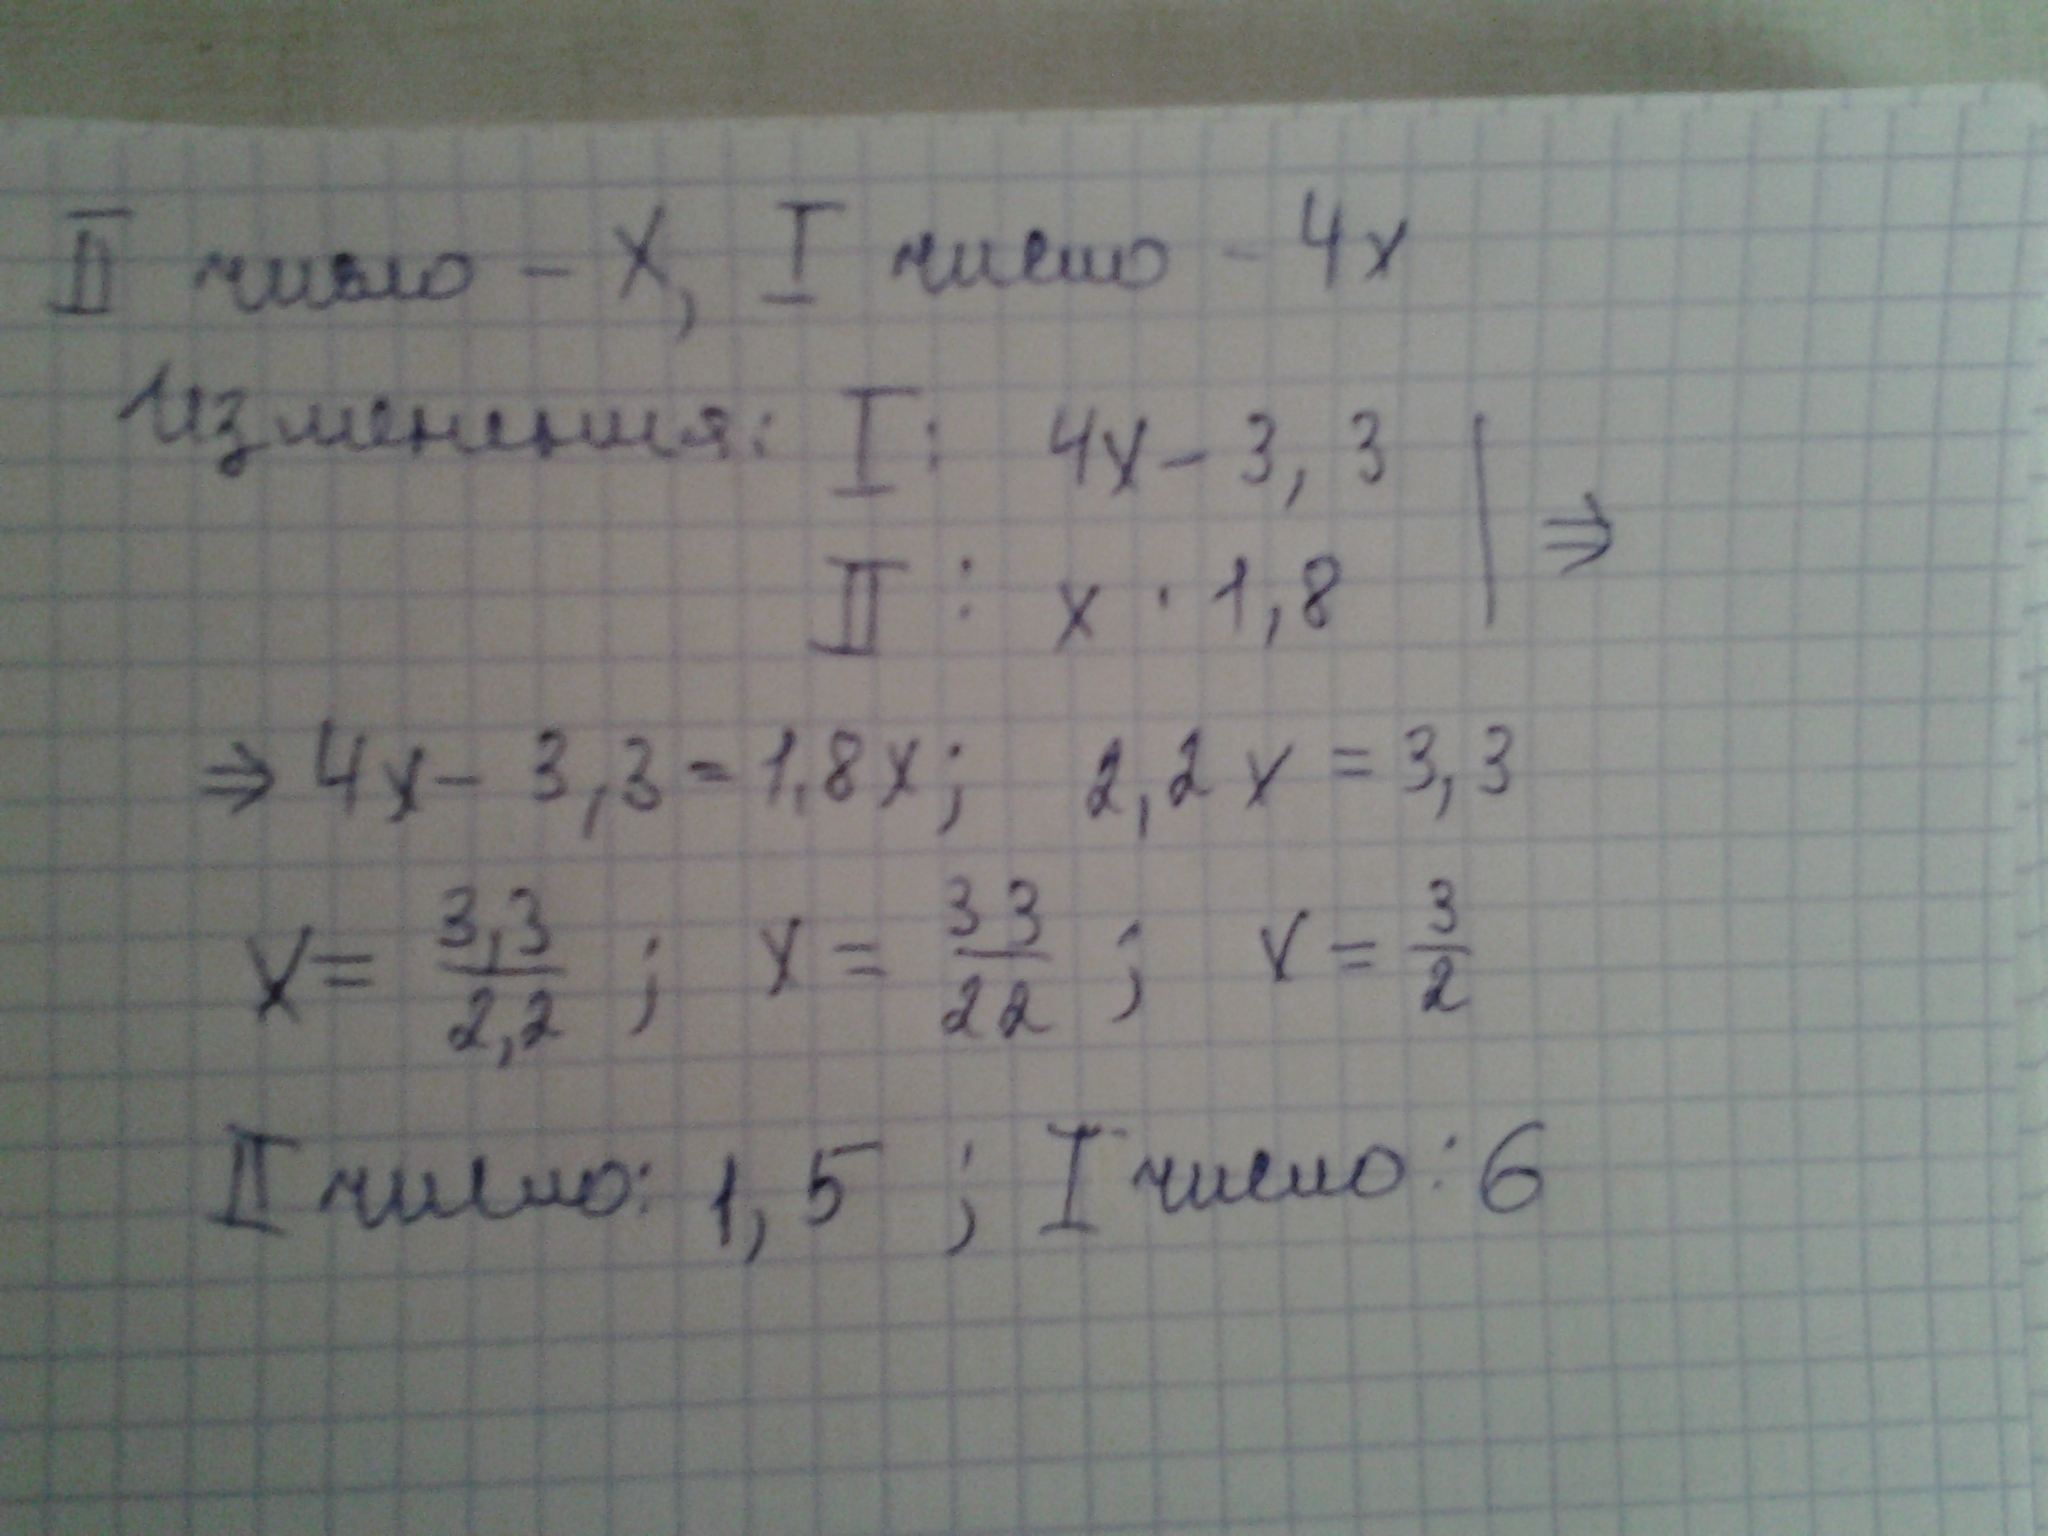 II число - x, I число - 4x
Изменения: I: 4x - 3,3
II: x · 1,8 | ⇒
⇒ 4x - 3,3 = 1,8x; 2,2x = 3,3
x = 3,3/2,2; x = 33/22; x = 3/2
II число: 1,5; I число: 6